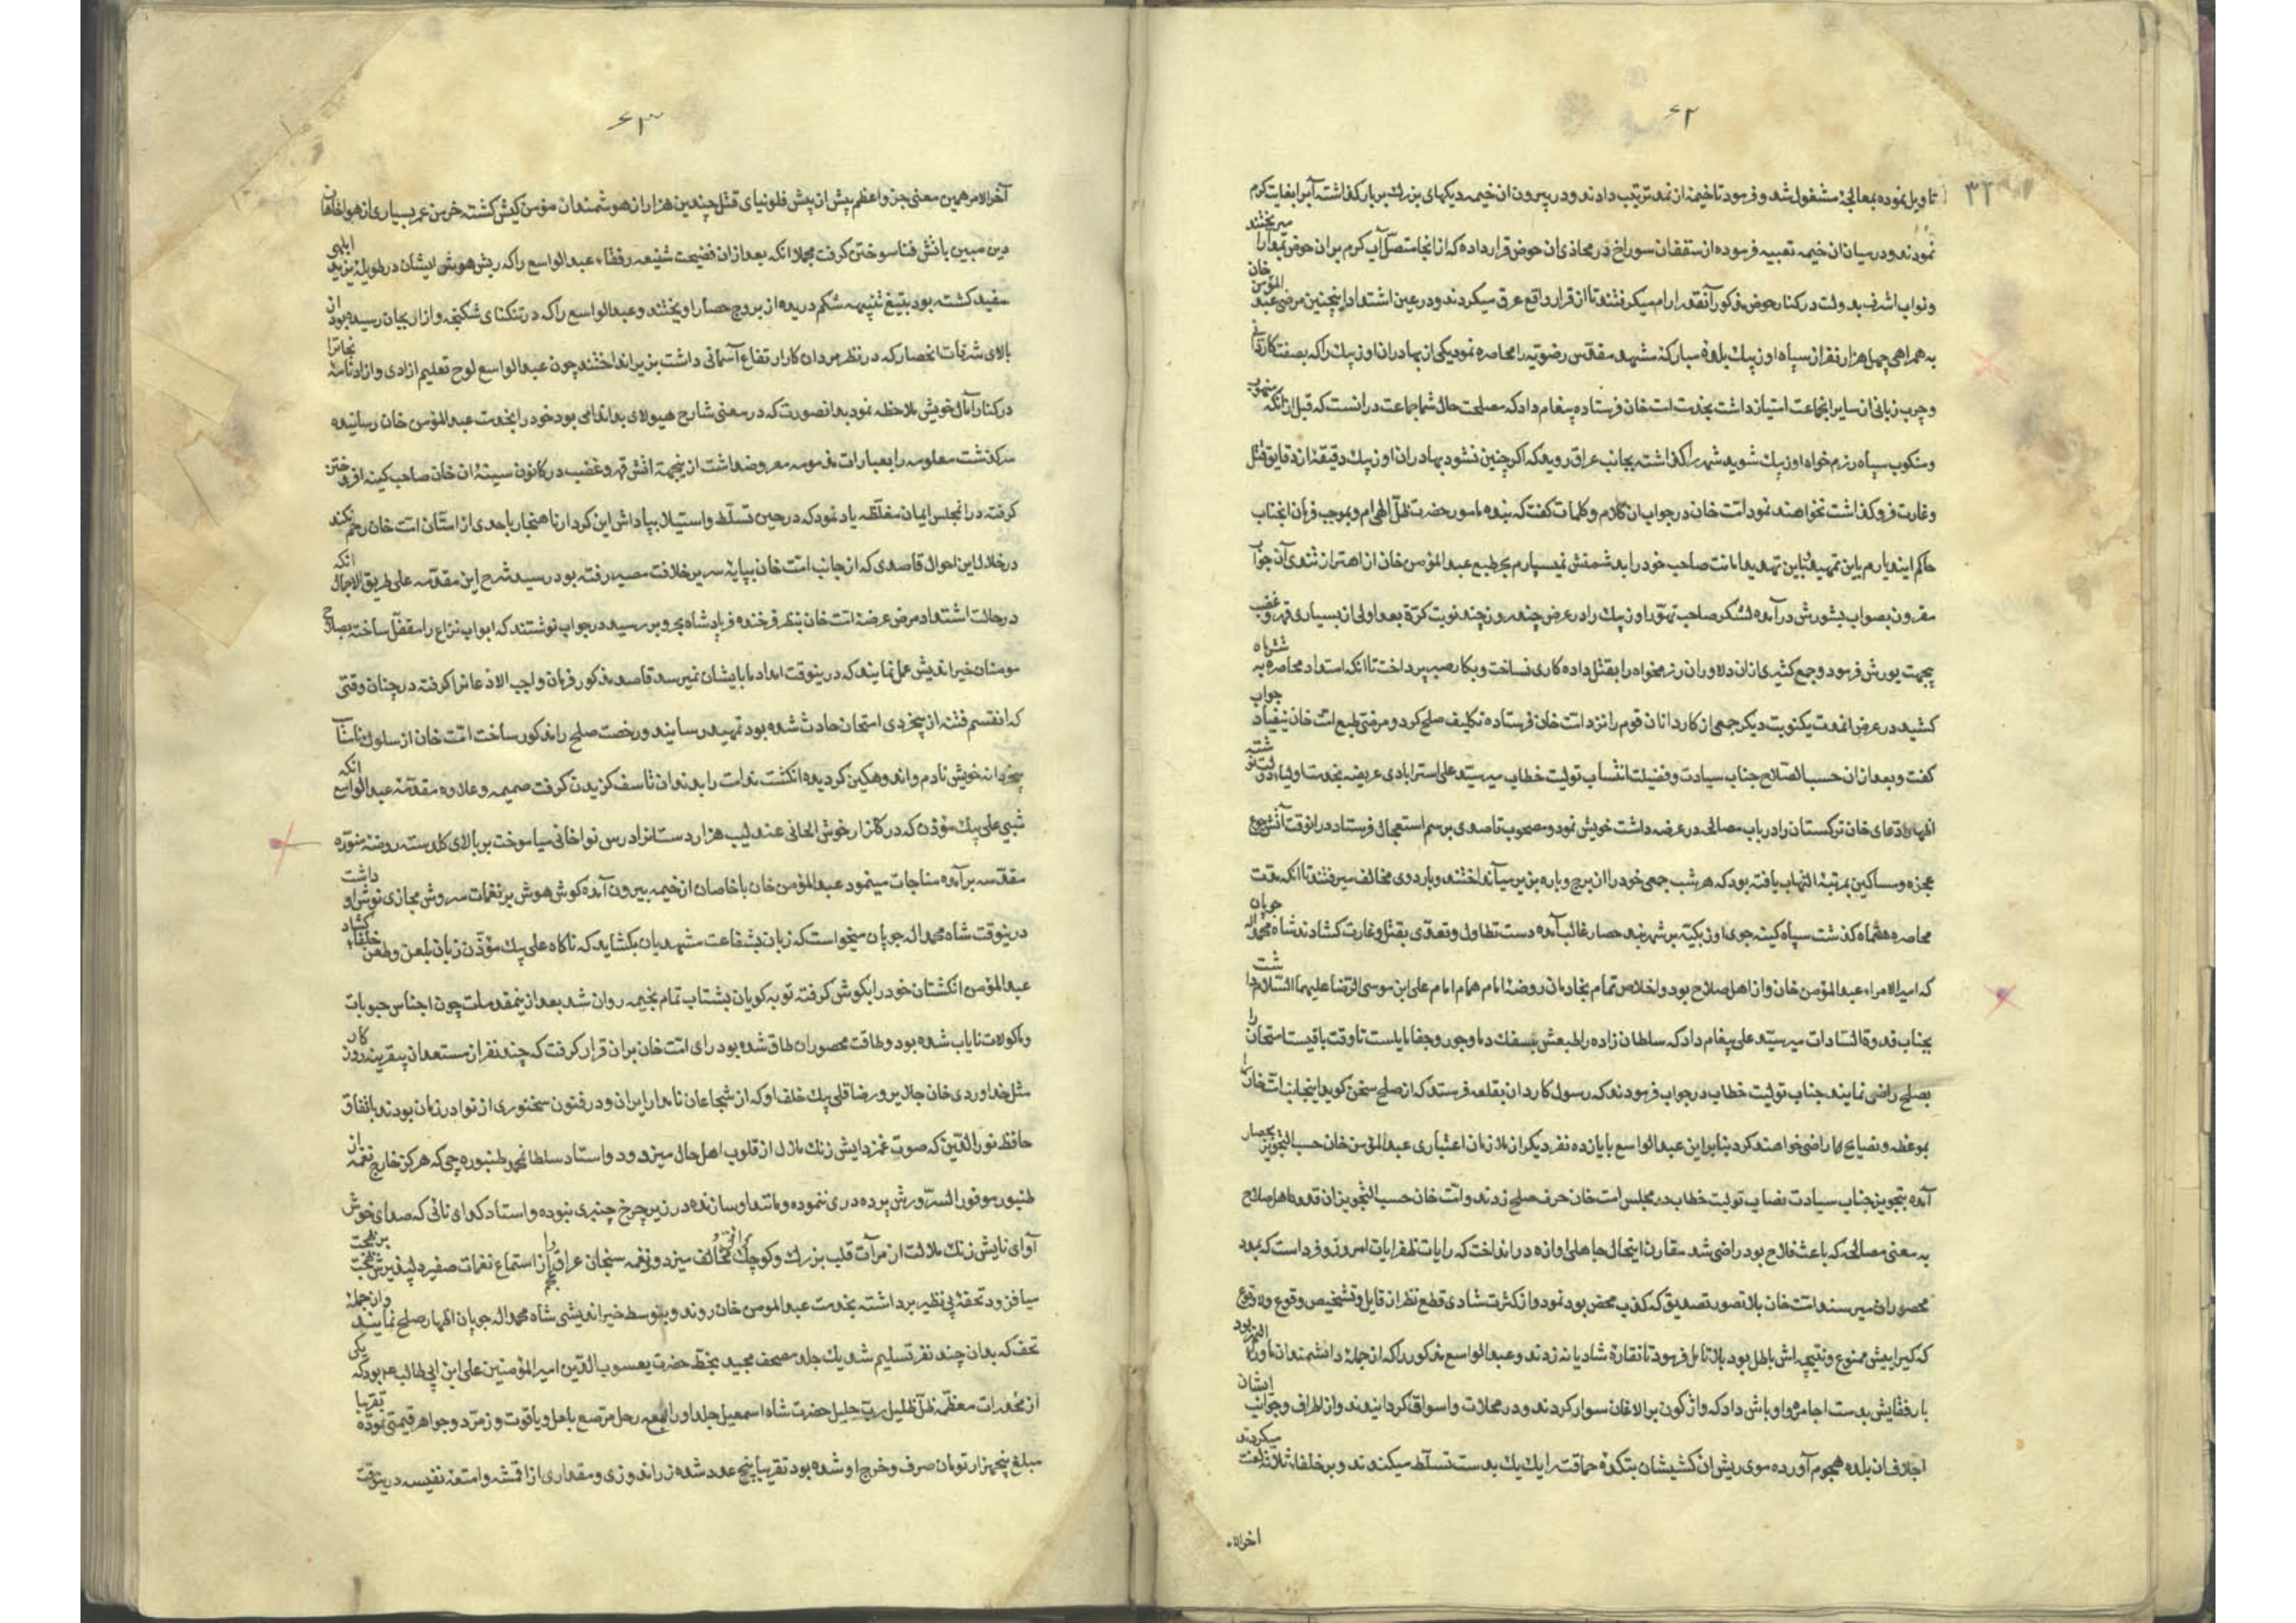 ۶۲
۳۲
تاویل نموده بمعالجۀ مشغول شد و فرمود تا خیمۀ از نمد ترتیب دادند و در بیرون ان خیمه دیکهای بزرك بر بار کذاشته آبرا بغایت کرم
نمودند و در میان ان خیمه تعبیه فرموده از سقف ان سوراخ در محاذی ان حوض قرار داده که از انجا متصل آب کرم بران حوض میریختند
و نواب اشرف بدولت در کنار حوض مذکور آنقدر ارام میکرفتند تا از قرار واقع عرق میکردند و در عین اشتداد اینچنین مرضی عبد المؤمن خان
به همراهی چهل هزار نفر از سپاه اوزبیك بلدۀ مبارکۀ مشهد مقدس رضویه را محاصره نمود یکی از بهادران اوزبیك را که بصفت کاردانی
و چرب زبانی از سایر انجماعت امتیاز داشت بخدمت امت خان فرستاده پیغام داد که مصلحت حال شما جماعت در انست که قبل از انکه منهوب
و منکوب سپاه رزم خواه اوزبیك شوید شهر را کذاشته بجانب عراق روید که اکر چنین نشود بهادران اوزبیك دقیقۀ از دقایق قتل
و غارت فروکذاشت نخواهند نمود امت خان در جواب ان کلام و کلمات کفت که بنده مامور حضرت ظل الهی ام و بموجب فرمان انجناب
حاکم ایندیارم باین تمهید و باین تهدید امانت صاحب خود را بدشمنش نمیسپارم بحر طبع عبد المؤمن خان از اهتزاز تندی آن جواب
مقرون بصواب بشورش در آمده لشکر صاحب تهور اوزبیك را در عرض چند روز چند نوبت کرة بعد اولی از بسیاری قهر و غضب
بجهت یورش فرمود و جمع کثیری از ان دلاوران رزمخواه را بقتل داده کاری نساخت و بکار صبر پرداخت تا انکه امتداد محاصره به شش ماه
کشید در عرض انمدت یکنوبت دیکر جمعی از کاردانان قوم را نزد امت خان فرستاده تکلیف صلح کرد و مرضی طبع امت خان نیفتاد جواب
کفت و بعد از ان حسب الصلاح جناب سیادت و فضیلت انتساب تولیت خطاب میر سید علی استرابادی عریضه بخدمت اولیاء دولت نوشته
اظهار ادعای خان ترکستان را در باب مصالحه در عرضه داشت خویش نمود و مصحوب قاصدی برسم استعجال فرستاد در انوقت آتش جوع
عجزه و مساکین بمرتبۀ التهاب یافته بود که هر شب جمعی خود را از برج و باره بزیر میانداختند و باردوی مخالف میرفتند تا انکه مدت
محاصره هشتماه کذشت سپاه کینه جوی اوزبکیه بر شهربند حصار غالب آمده دست تطاول و تعدی بقتل و غارت کشادند شاه محمد اله جویان
که امیر الامراء عبد المؤمن خان و از اهل صلاح بود و اخلاص تمام بخادمان روضۀ امام همام امام علی ابن موسی الرضا علیهما السلام داشت
بجناب قدوة السادات میر سید علی پیغام داد که سلطان زاده را طبعش بسفك دما و جور و جفا مایلست تا وقت باقیست امتخان را
بصلح راضی نمایند جناب تولیت خطاب در جواب فرمودند که رسول کاردان بقلعه فرستد که از صلح سخن کوید اینجانب امتخان را
بموعظه و نصایح ما راضی خواهند کرد بنابراین عبد الواسع با پانزده نفر دیکر از ملازمان اعتباری عبد المؤمن خان حسب التجویز بحصار
آمده بتجویز جناب سیادت نصاب تولیت خطاب در مجلس امت خان حرف صلح زدند و امت خان حسب التجویز ان قدوۀ اهل صلاح
به معنی مصالحه که باعث فلاح بود راضی شد مقارن اینحال جاهلی اوازه در انداخت که رایات ظفر ایات امروز و فرداست که بمدد
محصوران میرسند امت خان بلا تصور تصدیق که کذب محض بود نمود و از کثرت شادی قطع نظر از قایل و تشخیص وقوع و لا وقوع
که کبرایش ممنوع و نتیجه اش باطل بود بلا تامل فرمود تا نقارۀ شادیانه زدند و عبد الواسع مذکور را که از جملۀ دانشمندان ماوراء النهر بود
با رفقایش بدست اجامره و اوباش داد که واژکون بر الاغان سوار کردند و در محلات و اسواق کردانیدند و از اطراف و جوانب ایشان
اجلاف ان بلده هجوم آورده موی ریش ان کشیشان بتکدۀ حماقت را یك یك بدست تسلط میکندند و بر خلفاء ثلاثه لعنت میکردند
اخرالا
۶۳
آخر الامر همین معنی جزو اعظم بیش از پیش فلونیای قتل چندین هزار از هوشمندان مؤمن کیش کشته خرمن عمر بسیاری از هواخاهان
دین مبین باتش فنا سوختن کرفت مجلا انکه بعد از ان فضیحت شنیعه رفقاء عبد الواسع را که ریش هوش ایشان در طویلۀ ابلهی
سفید کشته بود بتیغ تنبیه شکم دریده از بروج حصار اویختند و عبد الواسع را که در تنکنای شکنجه و ازار بجان رسیده بود از
بالای شرفات انحصار که در نظر مردان کار ارتفاع آسمانی داشت بزیر انداختند چون عبد الواسع لوح تعلیم ازادی و ازادنامۀ نجاترا
در کنار آمال خویش ملاحظه نمود بدانصورت که در معنی شارح هیولای بداندامی بود خود را بخدمت عبد المؤمن خان رسانیده
سرکذشت معلومه را بعبارات مذمومه معروضداشت از ینجهت اتش قهر و غضب در کانون سینۀ ان خان صاحب کینه افروختن
کرفته در انمجلس ایمان مغلظه یاد نمود که در حین تسلط و استیلا بپاداش این کردار ناهنجار باحدی از استان امت خان رحم نکند
در خلال این احوال قاصدی که از جانب امت خان بپایۀ سریر خلافت مصیر رفته بود رسید شرح این مقدمه علی طریق الاجمال انکه
در حالت اشتداد مرض عرضۀ امت خان بنظر فرخنده فر پادشاه بحر و بر رسید در جواب نوشتند که ابواب نزاع را مقفل ساخته بصلاح
مومنان خیر اندیش عمل نمایند که در ینوقت امداد ما بایشان نمیرسد قاصد مذکور فرمان واجب الاذعانرا کرفته در چنان وقتی
که انقسم فتنۀ از بیخردی امتخان حادث شده بود بمشهد رسانید و رخصت صلح را مذکور ساخت امت خان از سلوك ناشناسا
بیخردانه خویش نادم و اندوهکین کردیده انکشت ندامت را بدندان تاسف کزیدن کرفت ضمیمه و علاوه مقدمۀ عبد الواسع انکه
شبی علی بیك مؤذن که در کلزار خوش الحانی عندلیب هزار دستانرا درس نواخانی میاموخت بر بالای کلدسته روضۀ منوره
مقدسه بر آمده مناجات مینمود عبد المؤمن خان با خاصان از خیمه بیرون آمده کوش هوش بر نغمات سروش مجازی نوش او داشت
در ینوقت شاه محمد اله جویان میخواست که زبان بشفاعت مشهدیان بکشاید که ناکاه علی بیك مؤذن زبان بلعن و طعن خلفاء کشاد
عبد المؤمن انکشتان خود را بکوش کرفته توبه کویان بشتاب تمام بخیمه روان شد بعد از ینمقدمات چون اجناس حبوبات
و ماکولات نایاب شده بود و طاقت محصوران طاق شده بود رای امت خان بران قرار کرفت که چند نفر از مستعدان بیقرینه روزکار
مثل خداوردی خان جلایر و رضا قلی بیك خلف او که از شجاعان نامدار ایران و در فنون سخنوری از نوادر زمان بودند باتفاق
حافظ نورالدین که صوت غمزدایش زنك ملال از قلوب اهل حال میزدود و استاد سلطانمحمد طنبوره چی که هرکز خارج نغمه از
طنبور موفور السرورش پرده دری ننموده و مانند او سازنده در زیر چرخ چنبری نبوده و استاد کدای نائی که صدای خوش
آوای نایش زنك ملالت از مرآت قلب بزرك و کوچك مخالف میزدود و نغمه سنجان عراق را از استماع نغمات صفیر دلپذیرش بهجت
میافزود تحفۀ بی نظیر برداشته بخدمت عبد المومن خان روند و بتوسط خیراندیشی شاه محمد اله جویان اظهار صلح نمایند و ان جمله
تحف که بدان چند نفر تسلیم شد یك جلد مصحف مجید بخط حضرت یعسوب الدین امیر المؤمنین علی ابن ابی طالب ع بود که یکی
از مخدرات معظمه ظل ظلیل رب جلیل حضرت شاه اسمعیل جلد او را مع رحل مرصع بلعل و یاقوت و زمرد و جواهر قیمتی نموده تقریبا
مبلغ پنجهزار تومان صرف و خرج او شده بود تقریبا پنج عدد شده زراندوزی و مقداری از اقمشه و امتعۀ نفیسه در ینوقت